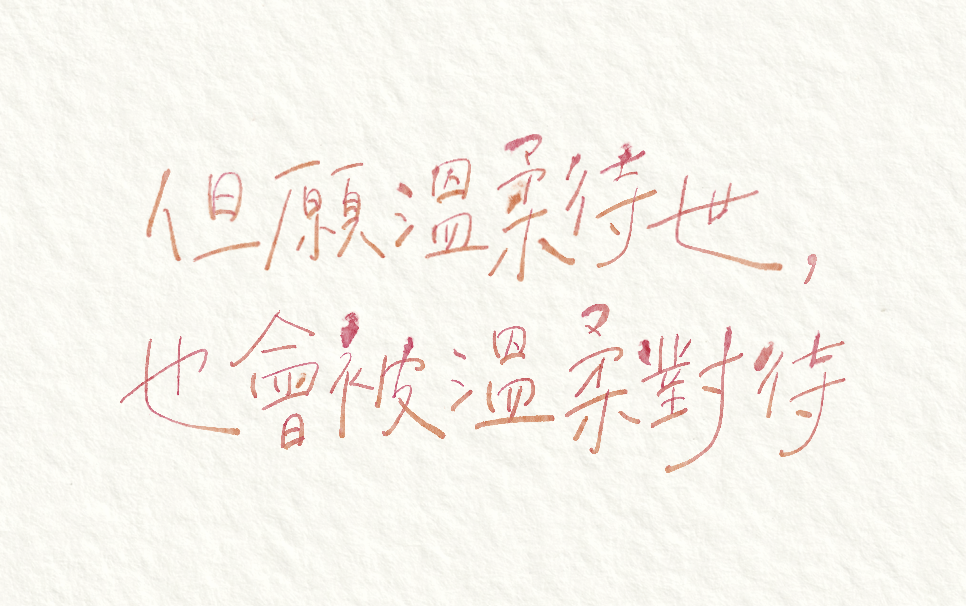 但願溫柔待世，
也會被溫柔對待